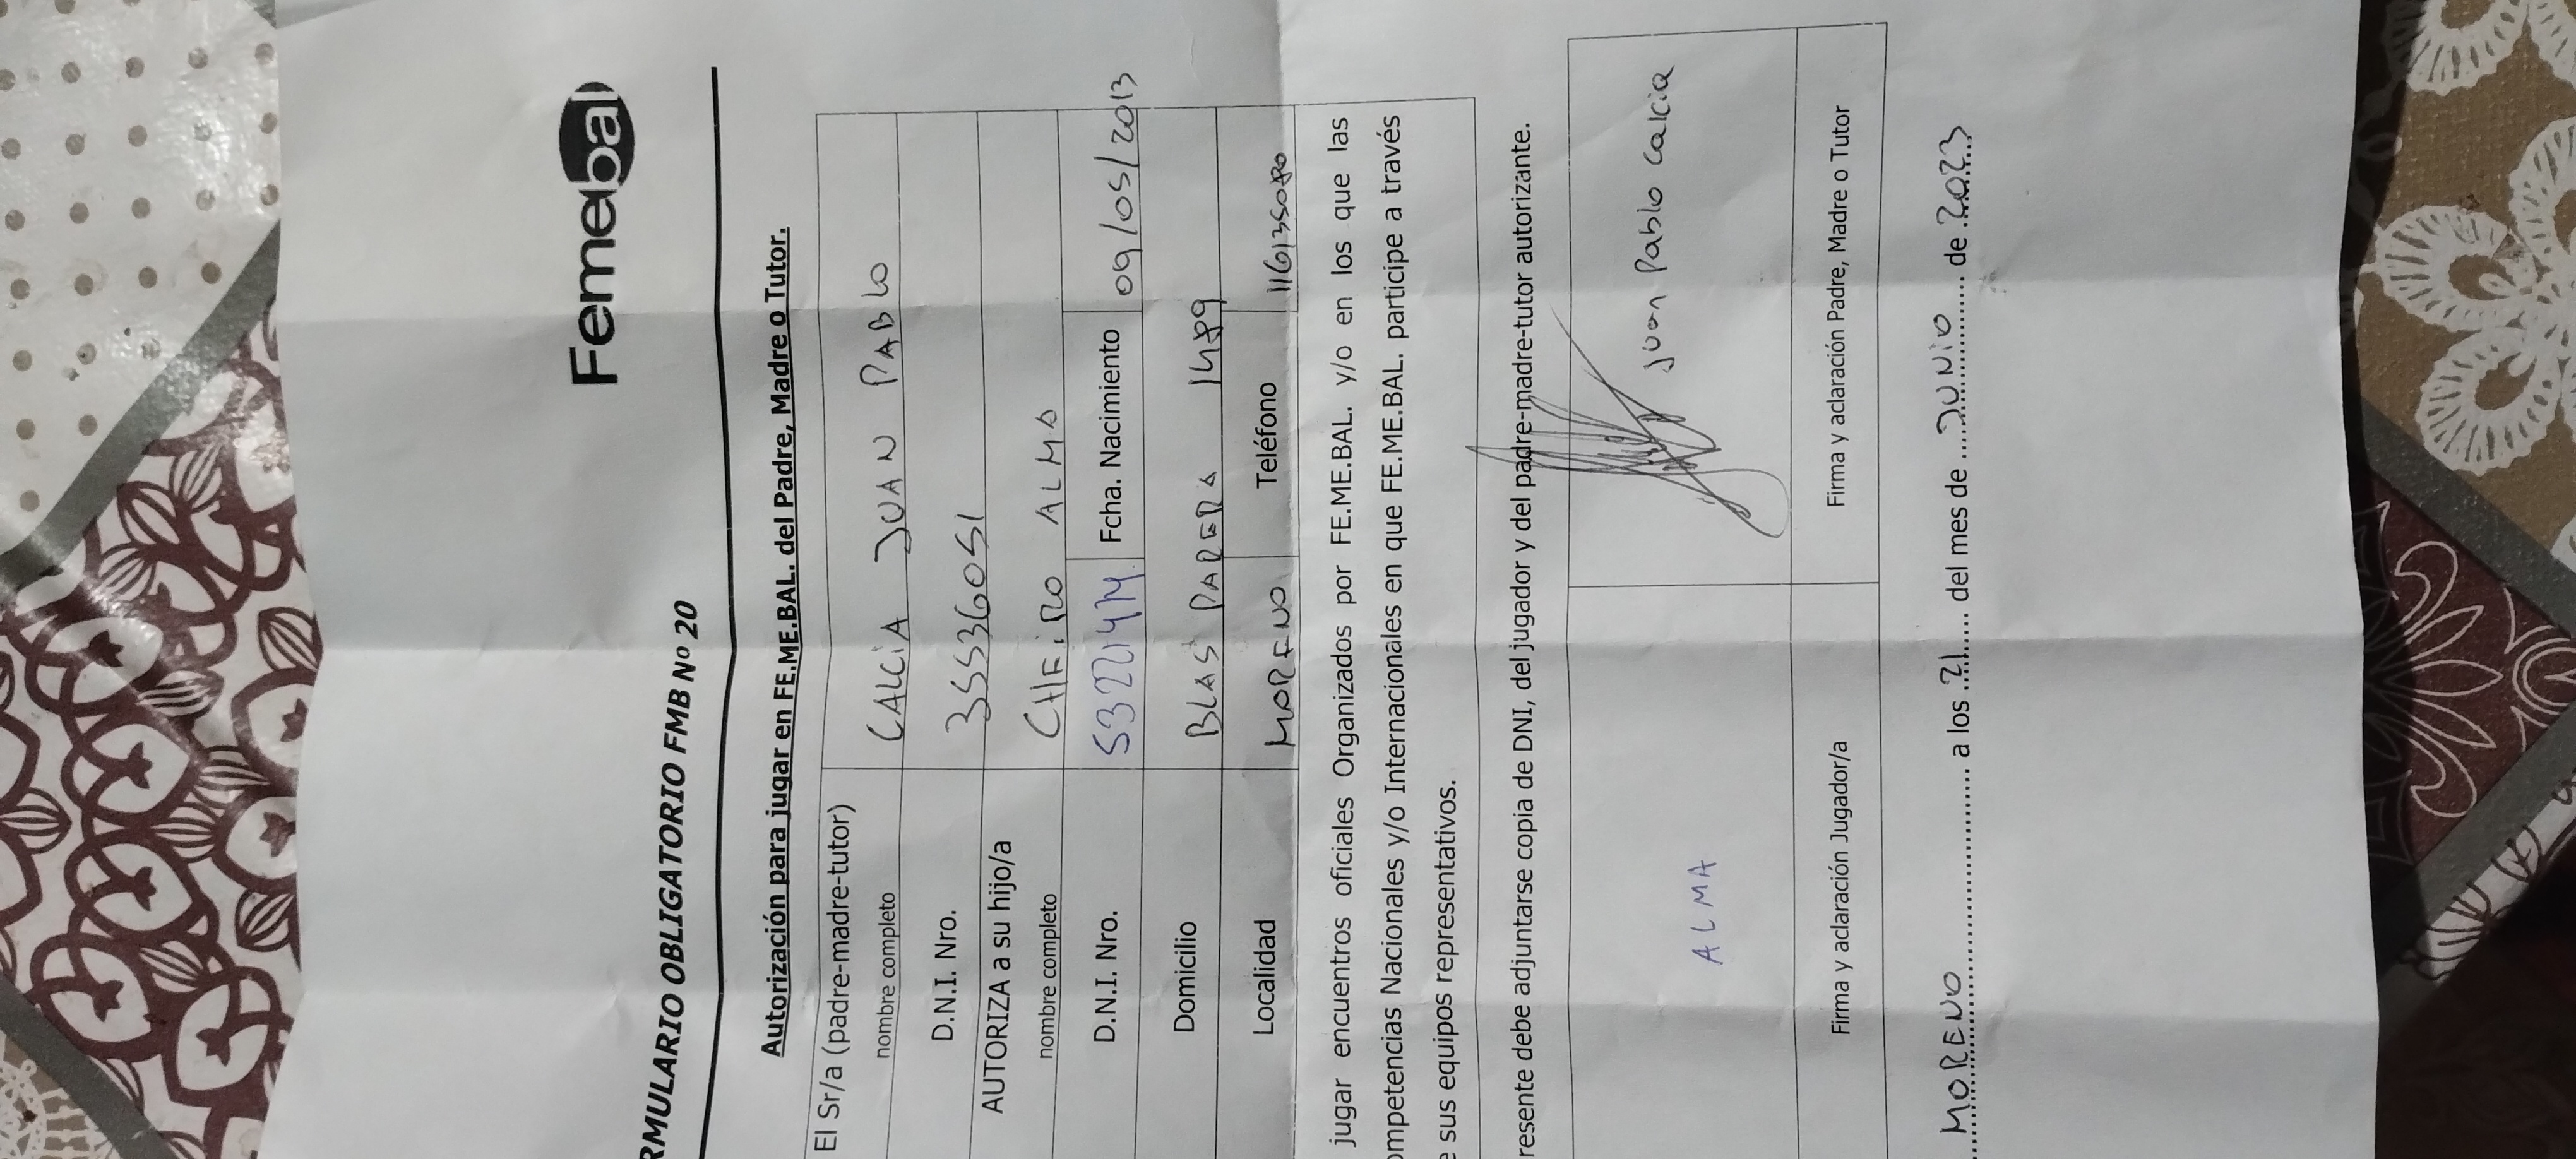 Femebal
RMULARIO OBLIGATORIO FMB Nº 20
Autorización para jugar en FE.ME.BAL. del Padre, Madre o Tutor.
El Sr/a (padre-madre-tutor)
nombre completo CALCIA JUAN PABLO
D.N.I. Nro. 35536051
AUTORIZA a su hijo/a
nombre completo ALMA
D.N.I. Nro. Fcha. Nacimiento 09/05/2013
Domicilio BLAS PARERA 1489
Localidad MORENO Teléfono 1161350880
jugar encuentros oficiales Organizados por FE.ME.BAL. y/o en los que las
ompetencias Nacionales y/o Internacionales en que FE.ME.BAL. participe a través
e sus equipos representativos.
resente debe adjuntarse copia de DNI, del jugador y del padre-madre-tutor autorizante.
ALMA Juan Pablo Calcia
Firma y aclaración Jugador/a Firma y aclaración Padre, Madre o Tutor
MORENO a los 21 del mes de JUNIO de 2023